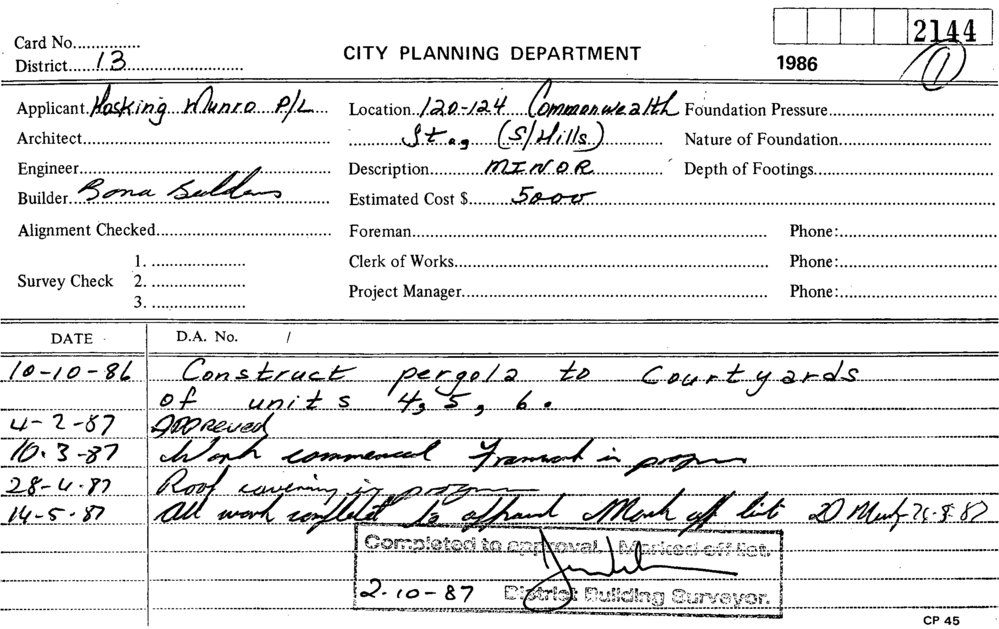 Card No............... CITY PLANNING DEPARTMENT 2144
District....13........................ 1986 1
Applicant. Hosking Munro P/L Location..120-124 Commonwealth Foundation Pressure
Architect St., (S/Hills) Nature of Foundation
Engineer Description MINOR Depth of Footings
Builder Bona Builders Estimated Cost $ 5000
Alignment Checked Foreman Phone:
1. Clerk of Works Phone:
Survey Check 2.
Project Manager Phone:
3.
DATE D.A. No. /
10-10-86 Construct pergola to courtyards
of units 4, 5, 6.
4-2-87 Approved
10.3-87 Work commenced Framework in progress
28-4-87 Roof covering in progress
14-5-87 All work completed to approval Mark off list 26-8-87
Completed to approval. Marked off list.
2-10-87 District Building Surveyor.
CP 45